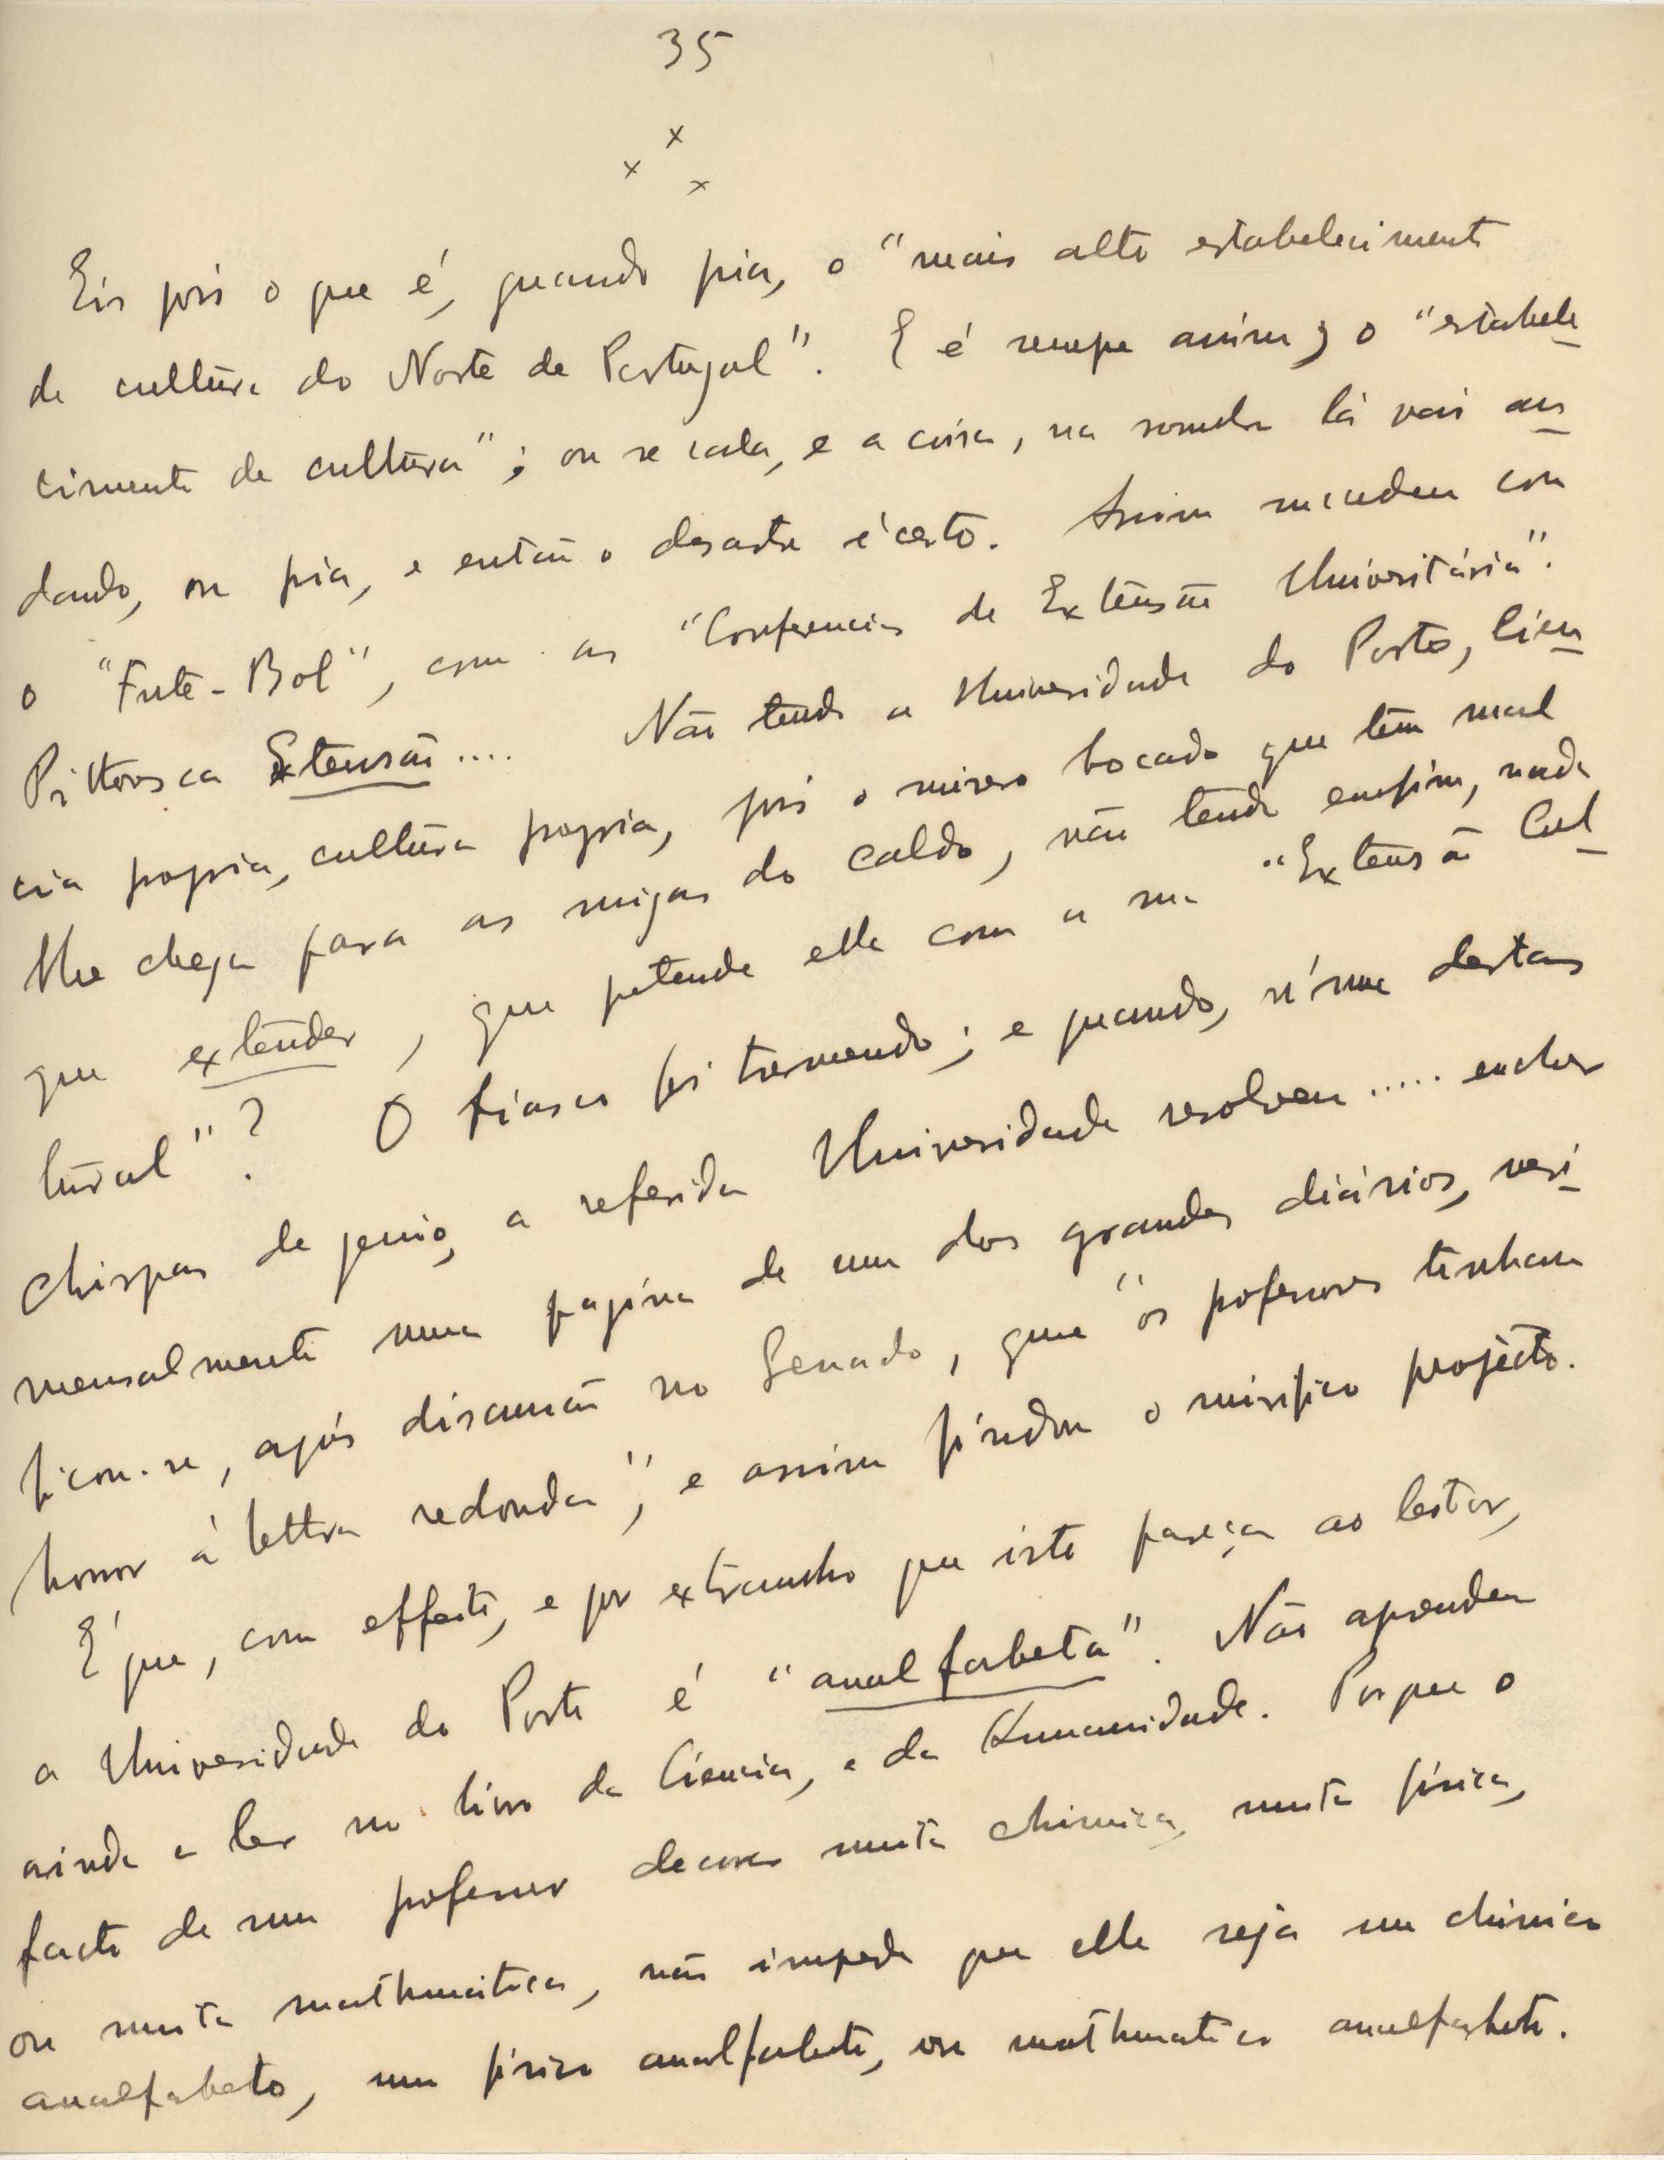 35
x
x x
Eis pois o que é, quando pia, o "mais alto estabelecimento
de cultura do Norte de Portugal". E é sempre assim; o "estabele
cimento de cultura"; ou se cala, e a coisa, na sombra lá vai an
dando, ou pia, e então o desastre é certo. Assim succedeu com
o "Fute-Bol", com as "Conferencias de Extensão Universitária".
Pittoresca Extensão.... Não tendo a Universidade do Porto, scien
cia propria, cultura propria, pois o misero bocado que tem mal
lhe chega para as migas do caldo, não tendo emfim, nada
que extender, que pretende ella com a sua "Extensão Cul
tural"? O fiasco foi tremendo; e quando, n'uma destas
chispas de genio, a referida Universidade resolveu..... encher
mensalmente uma pagina de um dos grandes diários, veri
ficou-se, após discussão no Senado, que "os professores tinham
horror á lettra redonda", e assim findou o mirifico projécto.
É que, com effeito, e por extranho que isto pareça ao leitor,
a Universidade do Porto é "analfabeta". Não aprendeu
ainda a ler no livro da Ciencia, e da Humanidade. Porque o
facto de um professor decorar muita chimica, muita fisica,
ou muita mathematica, não impede que elle seja um chimico
analfabeto, um fisico analfabeto, ou mathematico analfabeto.